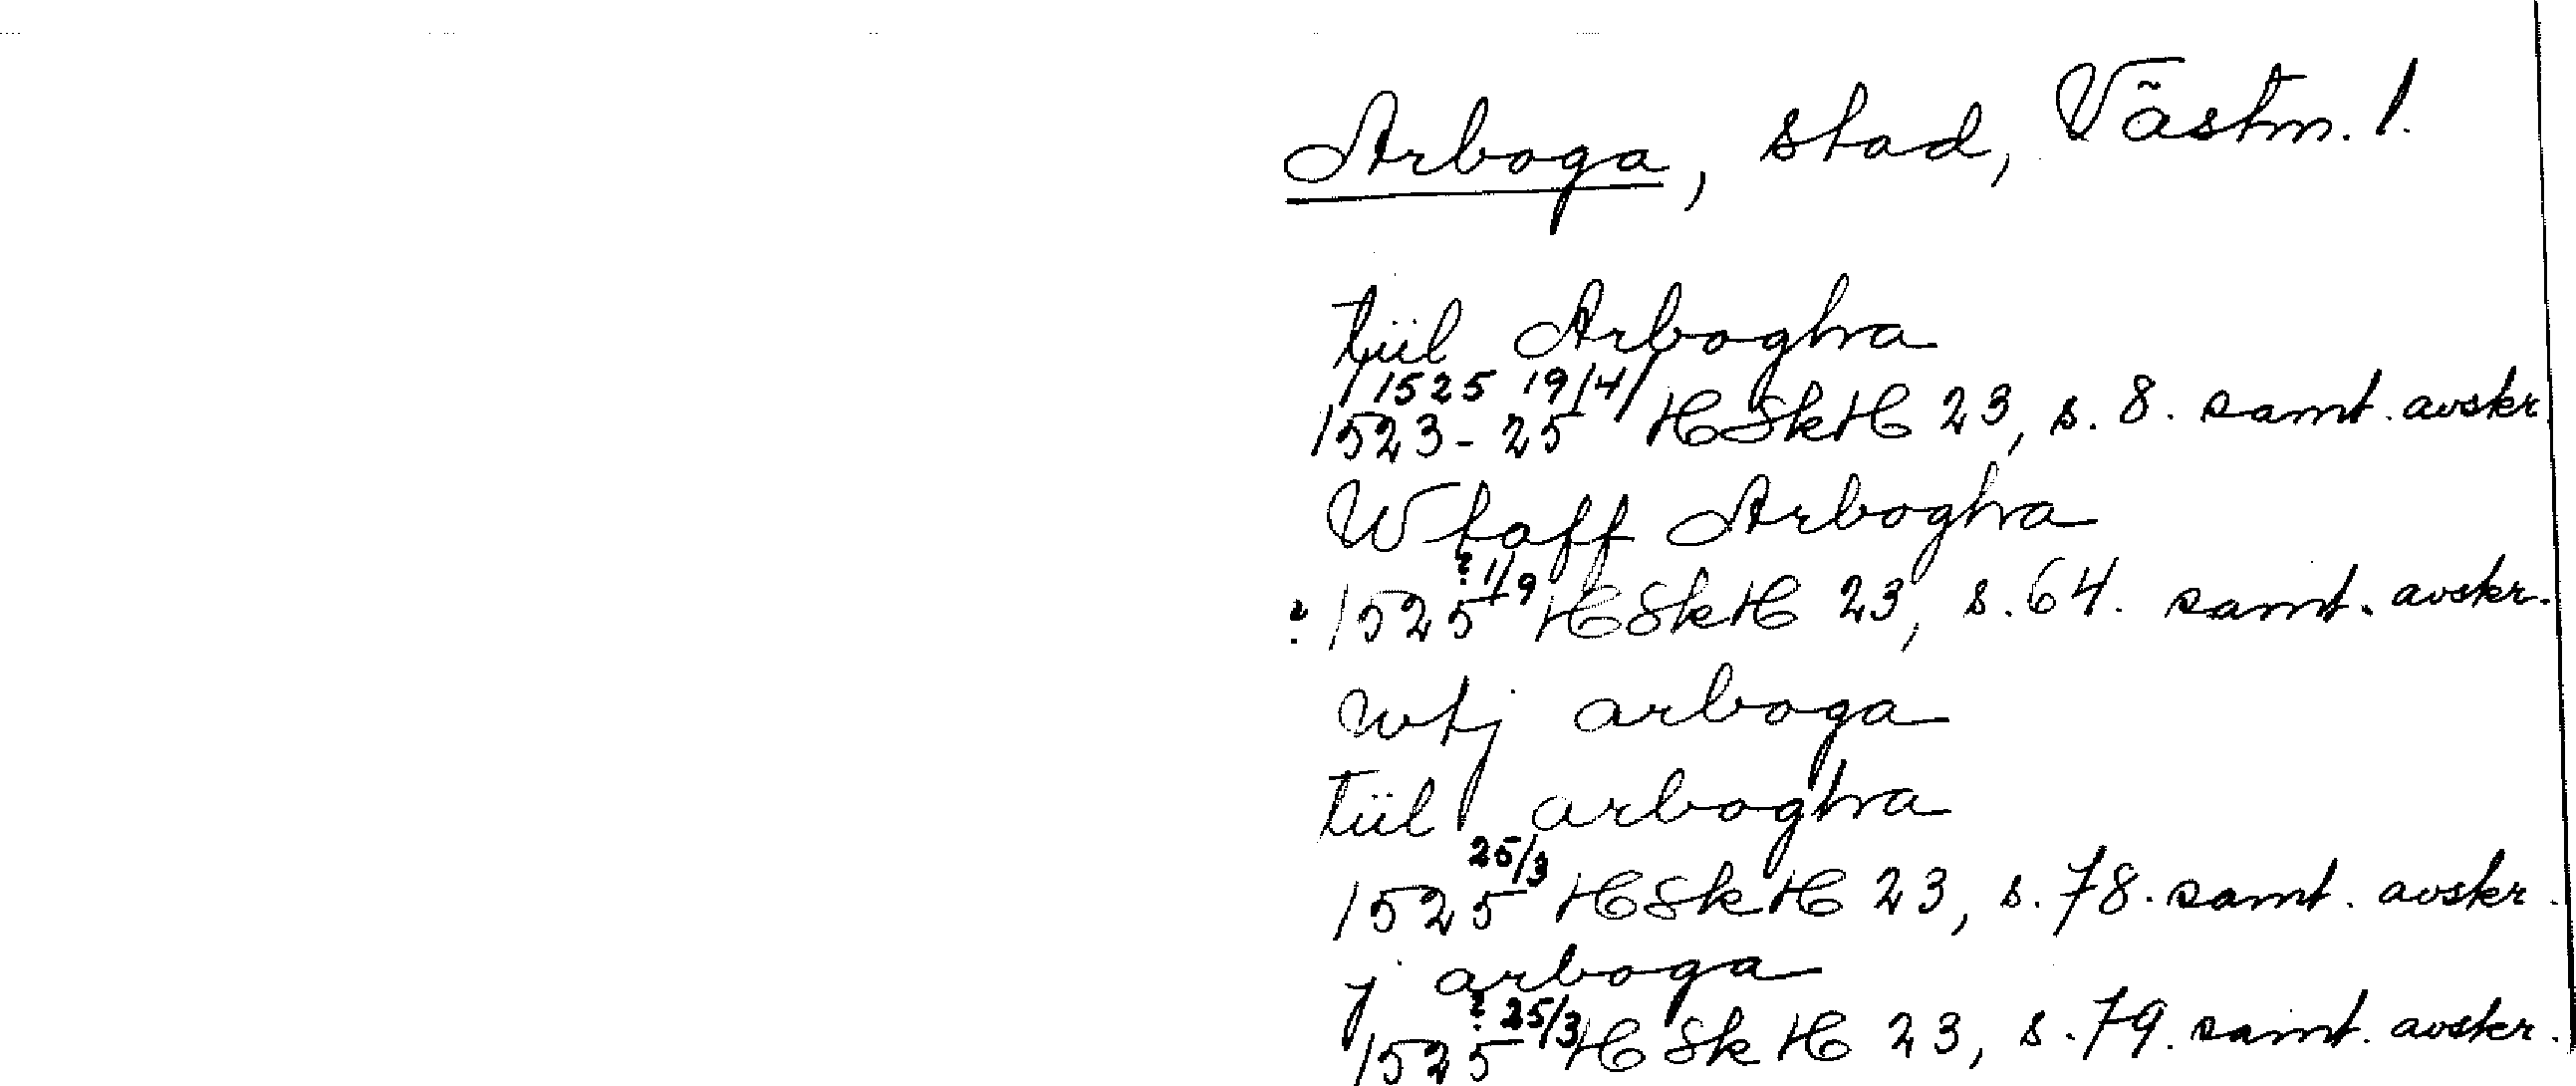 Arboga, stad, Västm. l.
tiil Arbogha
/1525 19/4/
1523-25 HSkH 23, s. 8. samt. avskr.
Wtaff Arbogha
? 1525 ? 1/9 HSkH 23, s. 64. samt. avskr.
wtj arboga
tiil arbogha
1525 25/3 HSkH 23, s. 78. samt. avskr.
j arboga
1525 ? 25/3 HSkH 23, s. 79. samt. avskr.